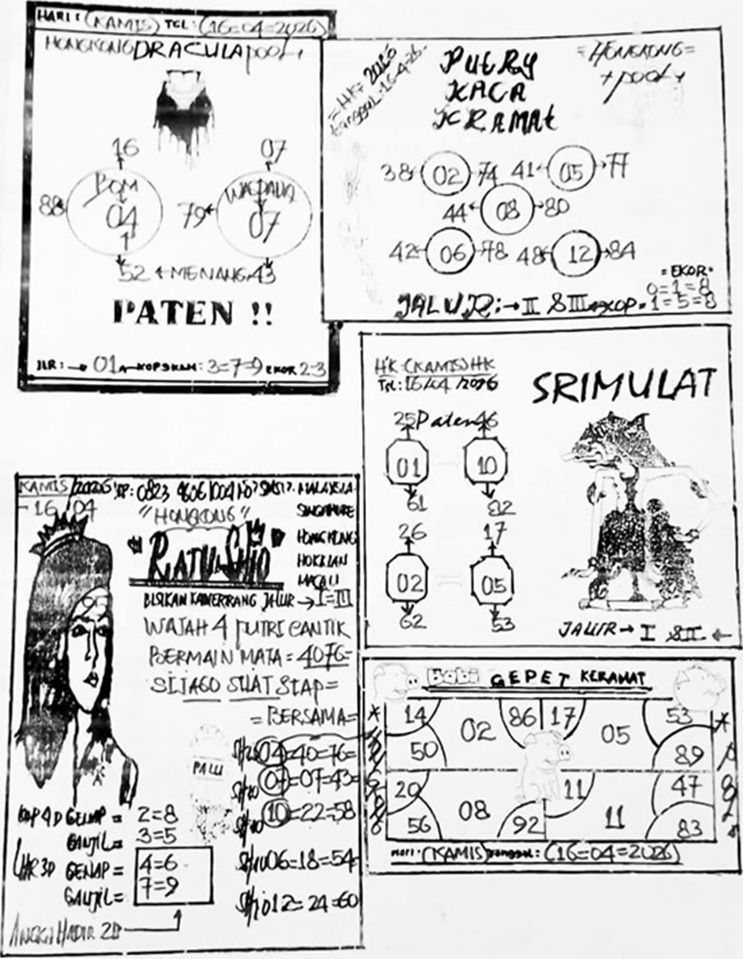 HARI: (KAMIS) TGL: (16=04=2026)
HONGKONG DRACULA pool
16 07
BOM WASPADA
88 04 79 07
52 MENANG 43
PATEN !!
JLR: 01 KOP 3=7=9 EKOR 2-3
=HK= 2026
tanggal:16-4-26
PUTRY
KACA
KRAMAT
=HONGKONG=
+pool+
38 02 74 41 05 77
44 08 80
42 06 78 48 12 84
=EKOR=
0=1=8
JALUR: II & III KOP = 1=5=8
HK (KAMIS) HK
TGL: 16/04/2026
SRIMULAT
25 Paten 46
01 10
61 82
26 17
02 05
62 53
JALUR I & II
KAMIS /2026 HP: 0823
16/04
MALAYSIA
SINGAPURE
HONGKONG
HOKKIAN
MACAU
"HONGKONG"
"RATU-SHIO"
BISIKAN JALUR I=III
WAJAH 4 PUTRI CANTIK
BERMAIN MATA = 4076=
SIJAGO SIAP=
=BERSAMA=
PALU
04=40=76=
07=07=43=
10=22=58
06=18=54
12=24=60
KOP 4D GENAP = 2=8
GANJIL = 3=5
GENAP = 4=6
GANJIL= 7=9
ANGKA HADIR 2D
Babi GEPET KERAMAT
14 02 86 17 05 53
50 89
20 08 11 11 47
56 92 83
HARI: (KAMIS) tanggal: (16=04=2026)